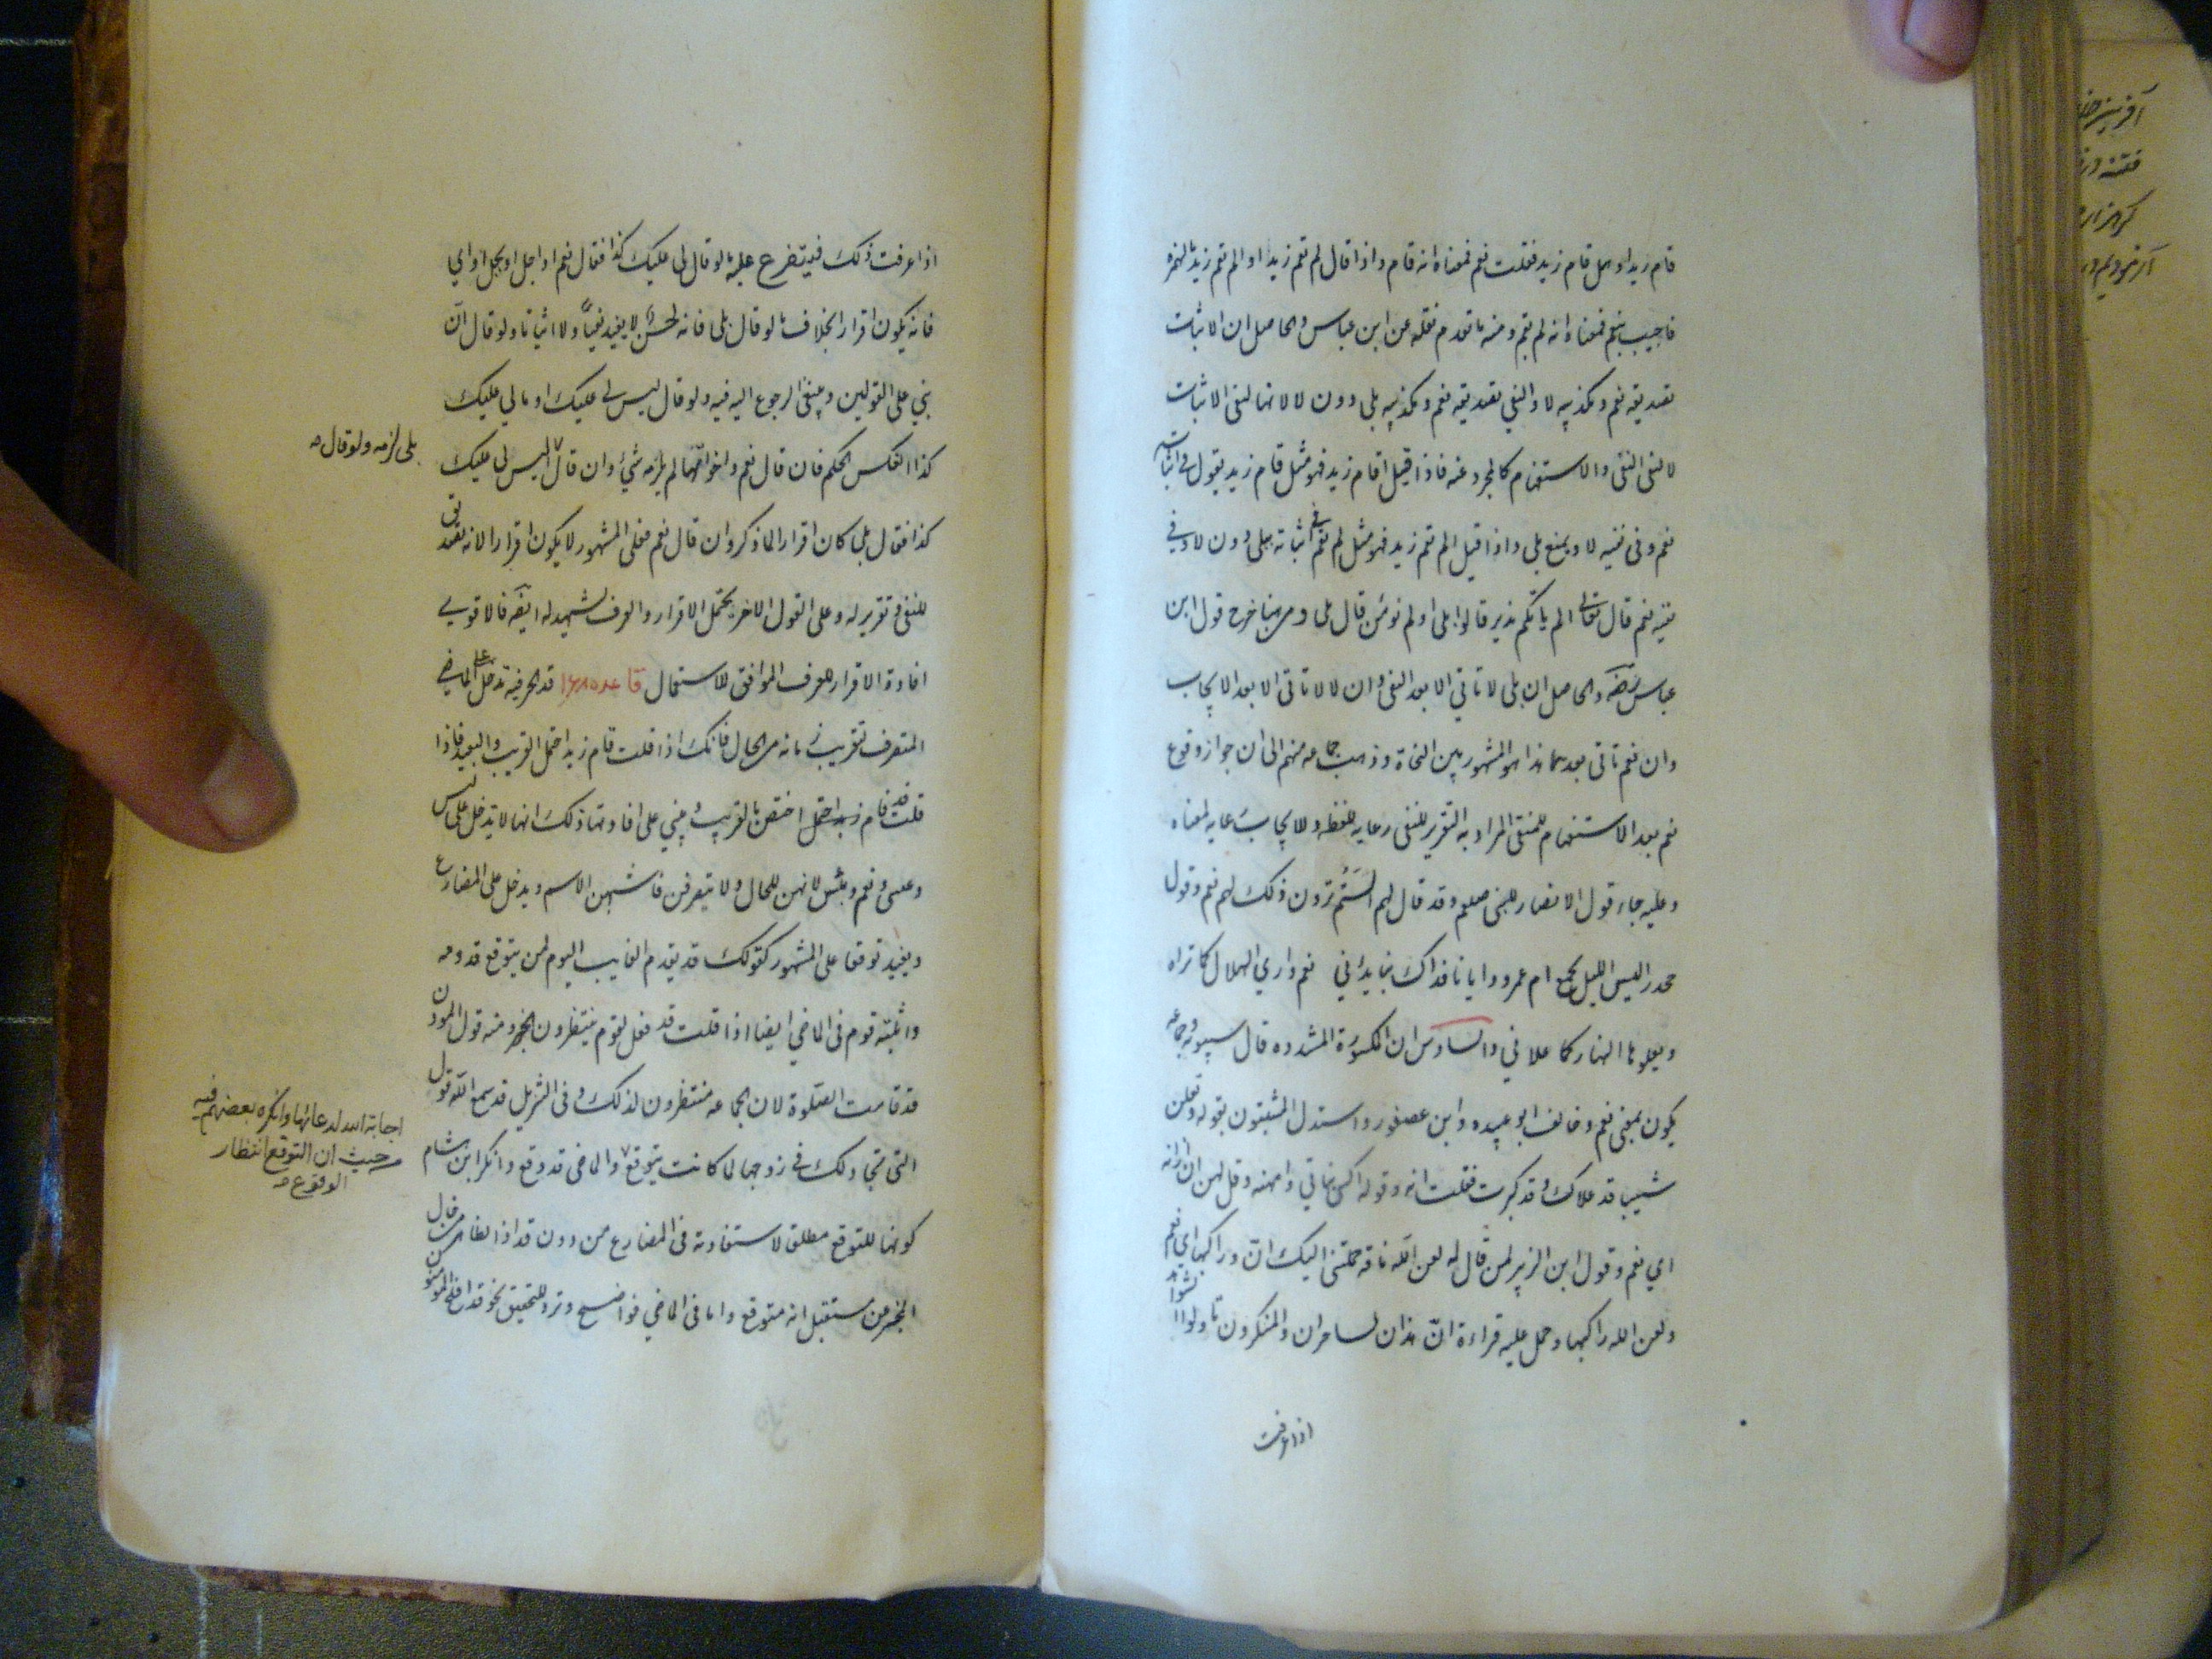 قام زيد او هل قام زيد فقلت نعم فمعناه انه قام واذا قال لم تقم زيد او الم تقم زيد بالهمزه
فاجيب بنعم فمعناه انه لم يقم ومنه ما تقدم نقله عن ابن عباس والحاصل ان الاثبات
تصديقه نعم وتكذيبه لا والنفي تصديقه نعم وتكذيبه بلى دون لا لانها لنفى الاثبات
لا لنفى النفى والاستفهام كالمجرد عنه فاذا قيل اقام زيد فهو مثل قام زيد يقول فى اثباته
نعم وفى نفيه لا ويمنع بلى واذا قيل الم تقم زيد فهو مثل لم تقم فى اثباته ببلى دون لا وفي
نفيه نعم قال تعالى الم ياتكم نذير قالوا بلى اولم تؤمن قال بلى ومن هنا خرج قول ابن
عباس رضه والحاصل ان بلى لا تاتي الا بعد النفى وان لا لا تاتى الا بعد الايجاب
وان نعم تاتى بعدهما هذا هو المشهور بين النحاة وذهب جماعه منهم الى ان جواز وقوع
نعم بعد الاستفهام للمنفى المراد به التقرير للنفى رعايه للفظه وللايجاب رعايه لمعناه
وعليه جاء قول الانصار للنبى صلعم وقد قال لهم الستم ترون ذلك لهم نعم وقول
جحدر اليس الليل يجمع ام عمرو وايانا فذاك بنا يداني نعم واري الهلال كما تراه
ويعلوها النهار كما علاني والسادس ان المكسورة المشدده قال سيبويه وجماعه
يكون بمعنى نعم وخالف ابو عبيده وابن عصفور واستدل المثبتون بقوله وتقلن
شيب قد علاك وقد كبرت فقلت انه وقوله
اي نعم وقول ابن الزبير لمن قال له لعن الله ناقه حملتنى اليك ان وراكبها اى نعم
ولعن الله راكبها وحمل عليه قراءة ان هذان لساحران والمنكرون تاولوا الشواهد
اذا عرفت
اذا عرفت ذلك فيتفرع عليه ما لو قال لى عليك كذا فقال نعم او اجل او بجل او اي
فانه يكون اقرارا بخلاف ما لو قال بلى فانه لا يفيد نفياً ولا اثباتا ولو قال ان
بني على القولين وينبغى الرجوع اليه فيه ولو قال ليس لى عليك او مالي عليك
كذا انعكس الحكم فان قال نعم واخواتها لم يلزمه شيئ وان قال اليس لى عليك
بلى لزمه ولو قال
كذا فقال بلى كان اقرارا لما ذكر وان قال نعم فعلى المشهور لا يكون اقرارا لانه تصديق
للنفى وتقرير له وعلى القول الاخر يحتمل الاقرار والعرف يشهد له ايضا فالاقوي
افادة الاقرار للعرف الموافق للاستعمال قاعده قد الحرفيه تدخل على الماضي
المتصرف لتقريب زمانه من الحال فانك اذا قلت قام زيد احتمل القريب والبعيد فاذا
قلت قد قام زيد احتمل اختص بالقريب ويبني على افادتها ذلك انها لا تدخل على ليس
وعسى ونعم وبئس لانهن للحال ولا يتصرفن فاشبهن الاسم ويدخل على المضارع
ويفيد توقعا على المشهور كقولك قد يقدم الغايب اليوم لمن يتوقع قدومه
واثبته قوم فى الماضي ايضا اذا قلت قد فعل لقوم ينتظرون الخبر ومنه قول الموذن
قد قامت الصلوة لان الجماعه منتظرون لذلك وفى التنزيل قد سمع الله قول
التى تجادلك فى زوجها لما كانت يتوقع والماضى قد وقع وانكر ابن هشام
اجابة الله لدعائها وانكره بعضهم فيه
من حيث ان التوقع انتظار
الوقوع
كونها للتوقع مطلقا لاستفادته فى المضارع من دون قد اذ الظاهر من قال
الخبر عن مستقبل انه متوقع واما فى الماضي فواضح وترد للتحقيق نحو قد افلح المومنون